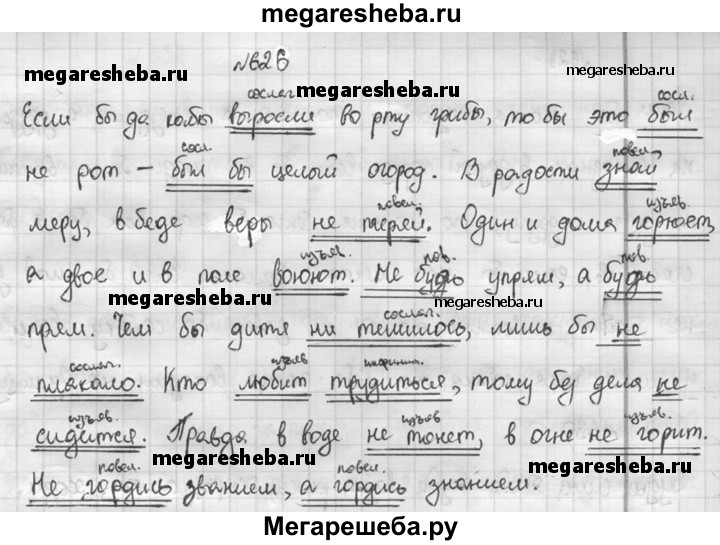 megaresheba.ru
№626
megaresheba.ru
megaresheba.ru
megaresheba.ru
сослаг. сосл.
Если бы да кабы выросли во рту грибы, то бы это был
сосл. повел.
не рот – был бы целый огород. В радости знай
повел. изъяв.
меру, в беде веры не теряй. Один и дома горюет,
изъяв. пов. пов.
а двое и в поле воюют. Не будь упрям, а будь
megaresheba.ru
megaresheba.ru
сослаг.
прям. Чем бы дитя ни тешилось, лишь бы не
сослаг. изъяв.
плакало. Кто любит трудиться, тому без дела не
изъяв. изъяв. изъяв.
сидится. Правда в воде не тонет, в огне не горит.
megaresheba.ru
megaresheba.ru
повел. повел.
Не гордись званием, а гордись знанием.
Мегарешеба.ру